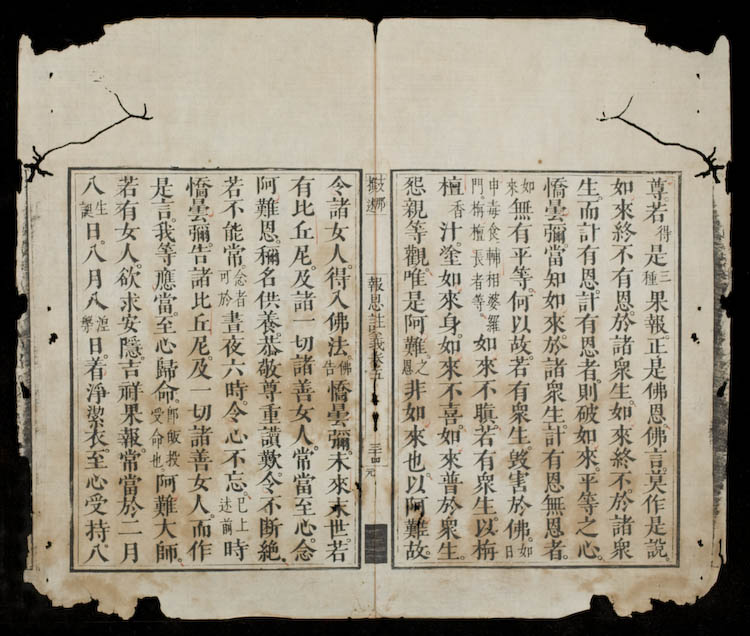 尊若得是三種果報。正是佛恩。佛言。莫作是說。
如來終不有恩。於諸衆生。如來終不於諸衆
生。而計有恩。計有恩者。則破如來平等之心。
憍曇彌。當知如來。於諸衆生。計有恩無恩者。
如來無有平等。何以故。若有衆生。毀害於佛。如日
申毒食輔相婆羅門。栴檀長者等。如來不瞋。若有衆生。以栴
檀香汁。塗如來身。如來不喜。如來普於衆生。
怨親等觀。唯是阿難之恩。非如來也。以阿難故。
支那撰述
報恩註義卷五
三十四
元
令諸女人。得入佛法。佛告憍曇彌。未來末世。若
有比丘尼。及諸一切諸善女人。常當至心。念
阿難恩。稱名供養。恭敬尊重讚歎。令不斷絕。
若不能常念者可於晝夜六時。令心不忘。已上述前時
憍曇彌。告諸比丘尼。及一切諸善女人。而作
是言。我等應當至心歸命。即皈投受命也阿難大師。
若有女人。欲求安隱。吉祥果報。常當於二月
八生誕日。八月八涅槃日。着淨潔衣。至心受持八